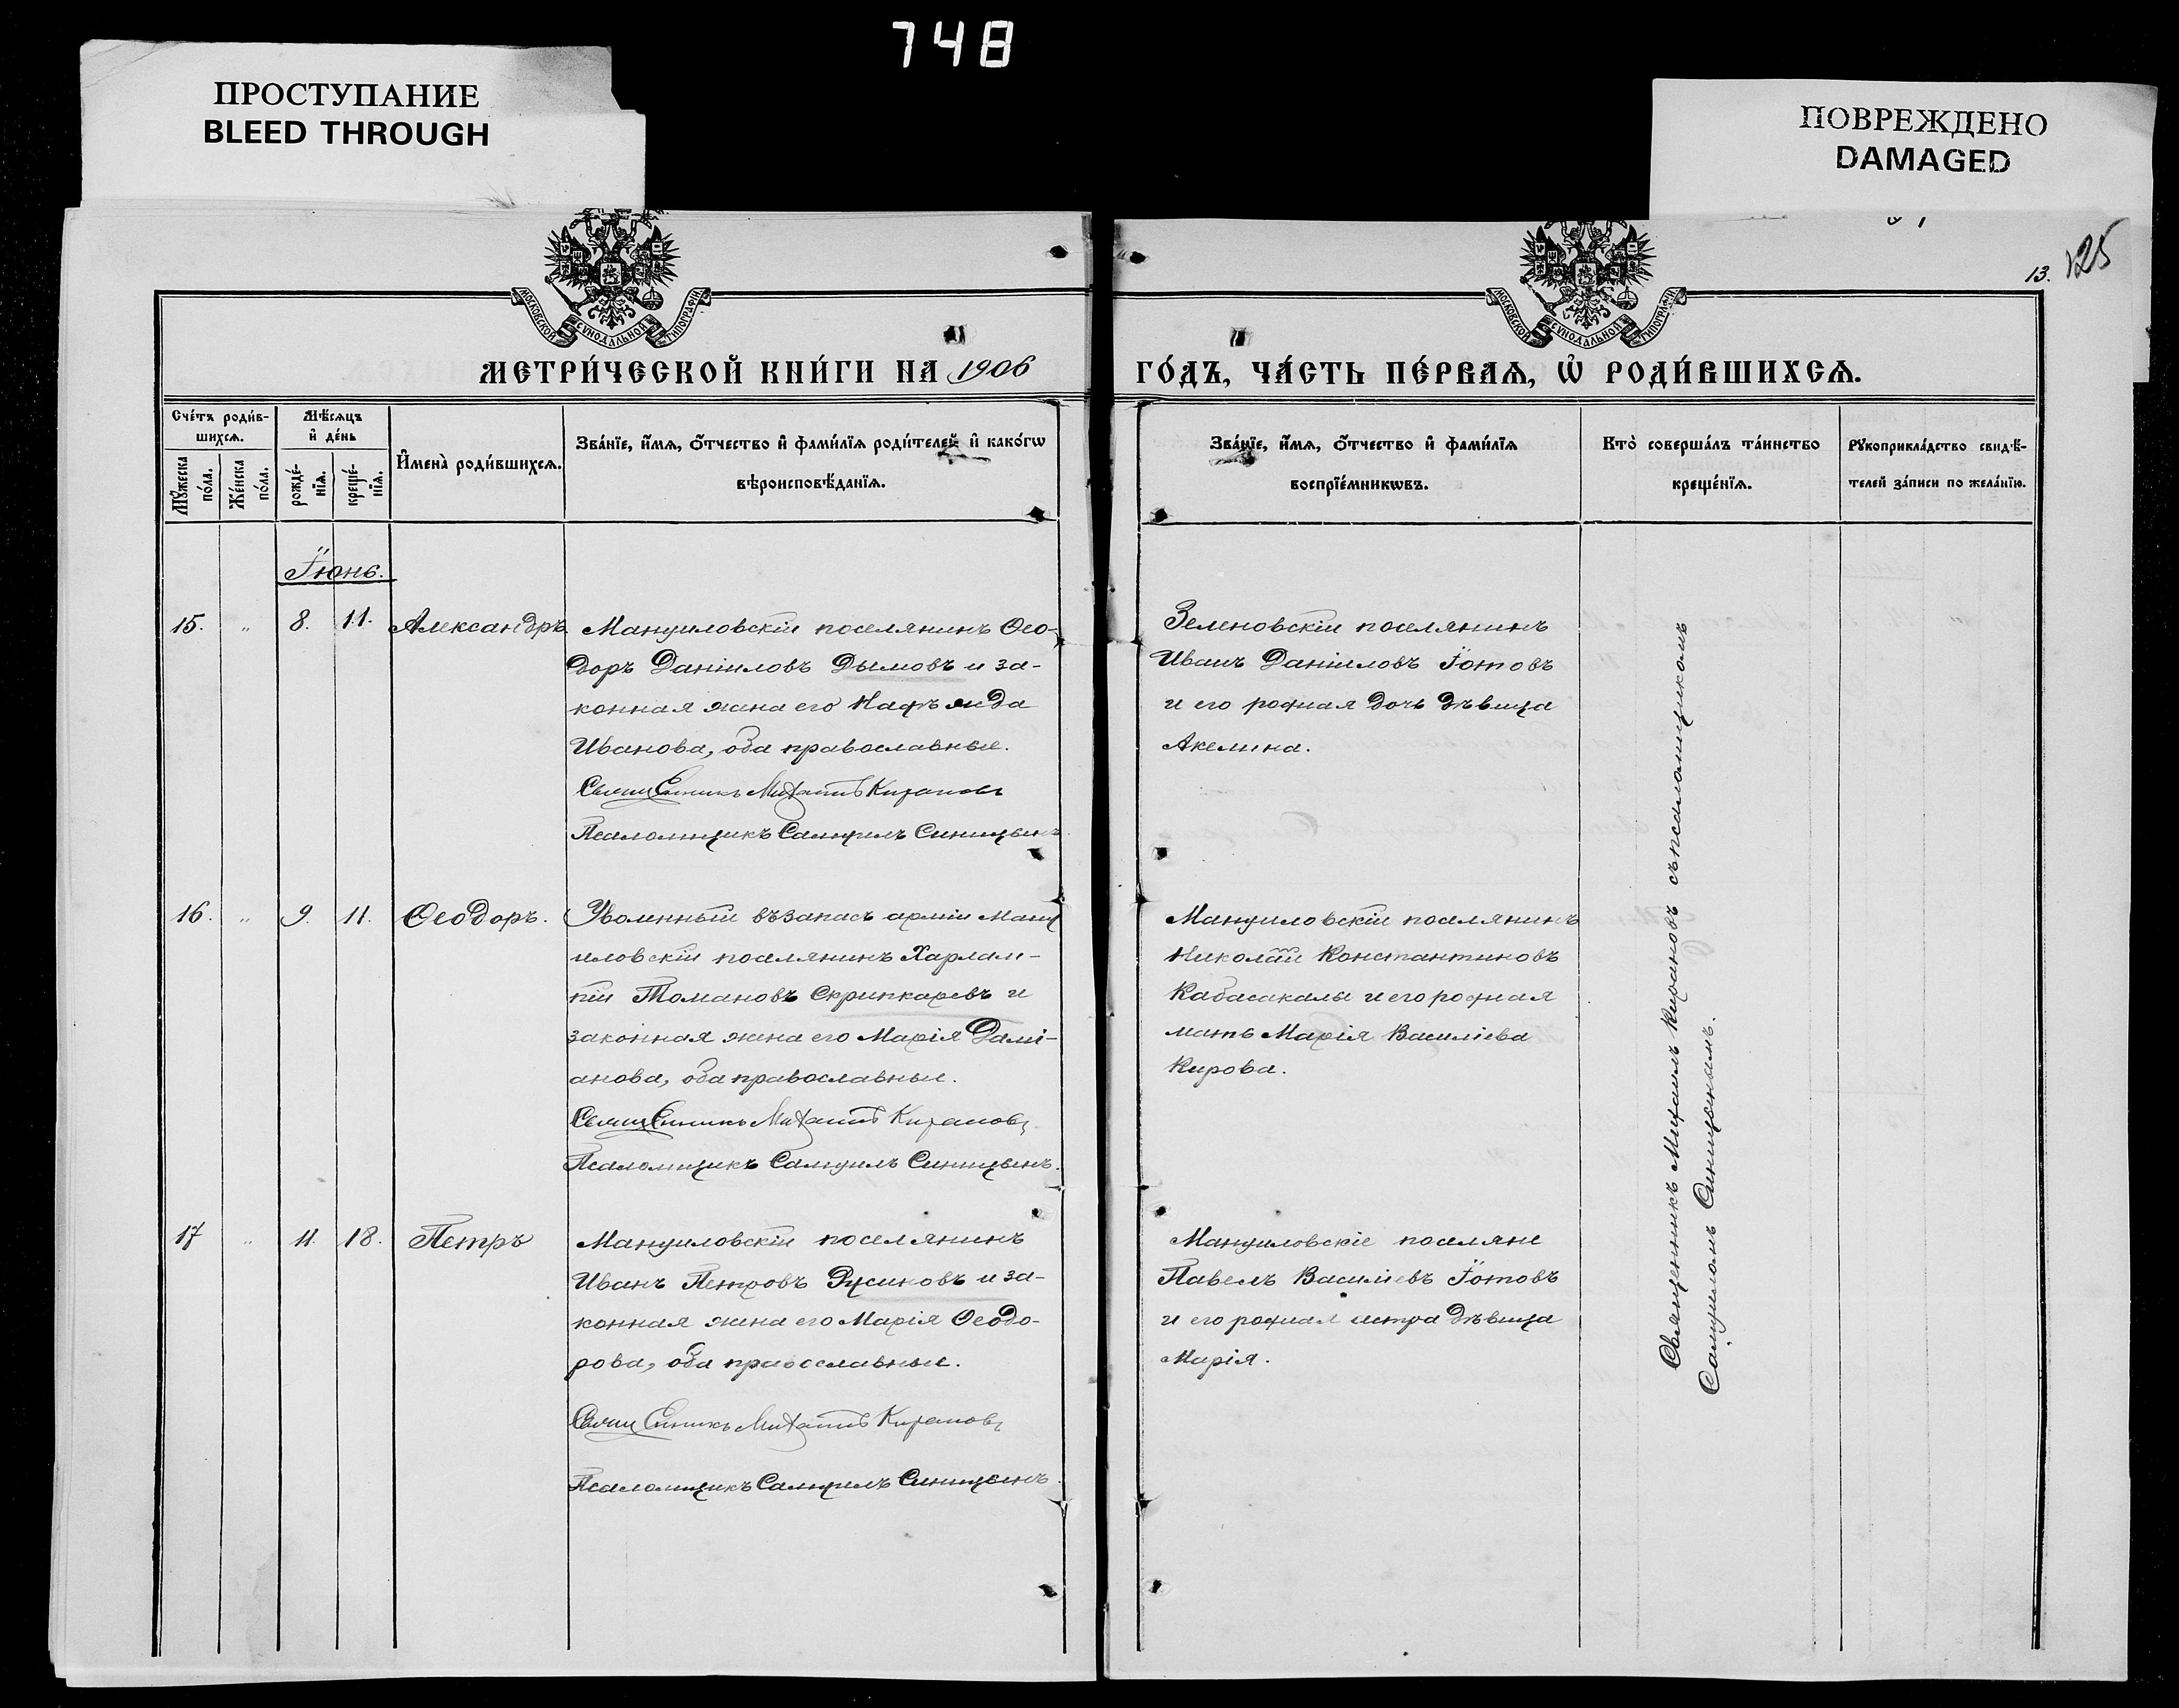 748
ПРОСТУПАНИЕ
BLEED THROUGH
ПОВРЕЖДЕНО
DAMAGED
13.
125
МОСКОВСКОЙ СѴНОДАЛЬНОЙ ТИПОГРАФІИ
МОСКОВСКОЙ СѴНОДАЛЬНОЙ ТИПОГРАФІИ
МЕТРИ́ЧЕСКОЙ КНИ́ГИ НА 1906
ГО́ДЪ, ЧА́СТЬ ПЕ́РВАѦ, Ѡ҆ РОДИ́ВШИХСѦ.
Сче́тъ роди́в-
шихсѧ.
Мꙋ́жеска
по́ла.
Же́нска
по́ла.
Мѣ́сѧцъ
и҆ де́нь
рожде́-
нїѧ.
креще́-
нїѧ.
И҆мена̀ роди́вшихсѧ.
Зва́нїе, и҆́мѧ, ѻ҆́тчество и҆ фами́лїѧ роди́телей и҆ како́гѡ
вѣроисповѣ́данїѧ.
Зва́нїе, и҆́мѧ, ѻ҆́тчество и҆ фами́лїѧ
воспрїе́мникѡвъ.
Кто̀ соверша́лъ та́инство
креще́нїѧ.
Рꙋкоприкла́дство свидѣ́-
телей за́писи по жела́нїю.
Іюнь.
15. „ 8. 11. Александръ.
Мануиловскій поселянинъ Ѳео-
доръ Даніиловъ Дымовъ и за-
конная жена его
Иванова, оба православные.
Священникъ Михаилъ Кирановъ
Псаломщикъ Самуилъ Синицынъ.
Зеленовскій поселянинъ
Иванъ Даніиловъ Іотовъ
и его родная дочь дѣвица
Акелина.
16. „ 9. 11. Ѳеодоръ.
Уволенный въ запасъ арміи Ману
иловскій поселянинъ Харлам-
пій Томановъ Скрипкаревъ и
законная жена его Марія Дамі-
анова, оба православные.
Священникъ Михаилъ Кирановъ
Псаломщикъ Самуилъ Синицынъ.
Мануиловскій поселянинъ
Николай Константиновъ
Кабасакалы и его родная
мать Марія Василіева
Кирова.
17 „ 11. 18. Петръ
Мануиловскій поселянинъ
Иванъ Петровъ Русиновъ и за-
конная жена его Марія Ѳеодо-
рова, оба православные.
Священникъ Михаилъ Кирановъ
Псаломщикъ Самуилъ Синицынъ.
Мануиловскіе поселяне
Павелъ Василіевъ Іотовъ
и его родная сестра дѣвица
Марія.
Священникъ Михаилъ Кирановъ съ псаломщикомъ
Самуиломъ Синицынымъ.